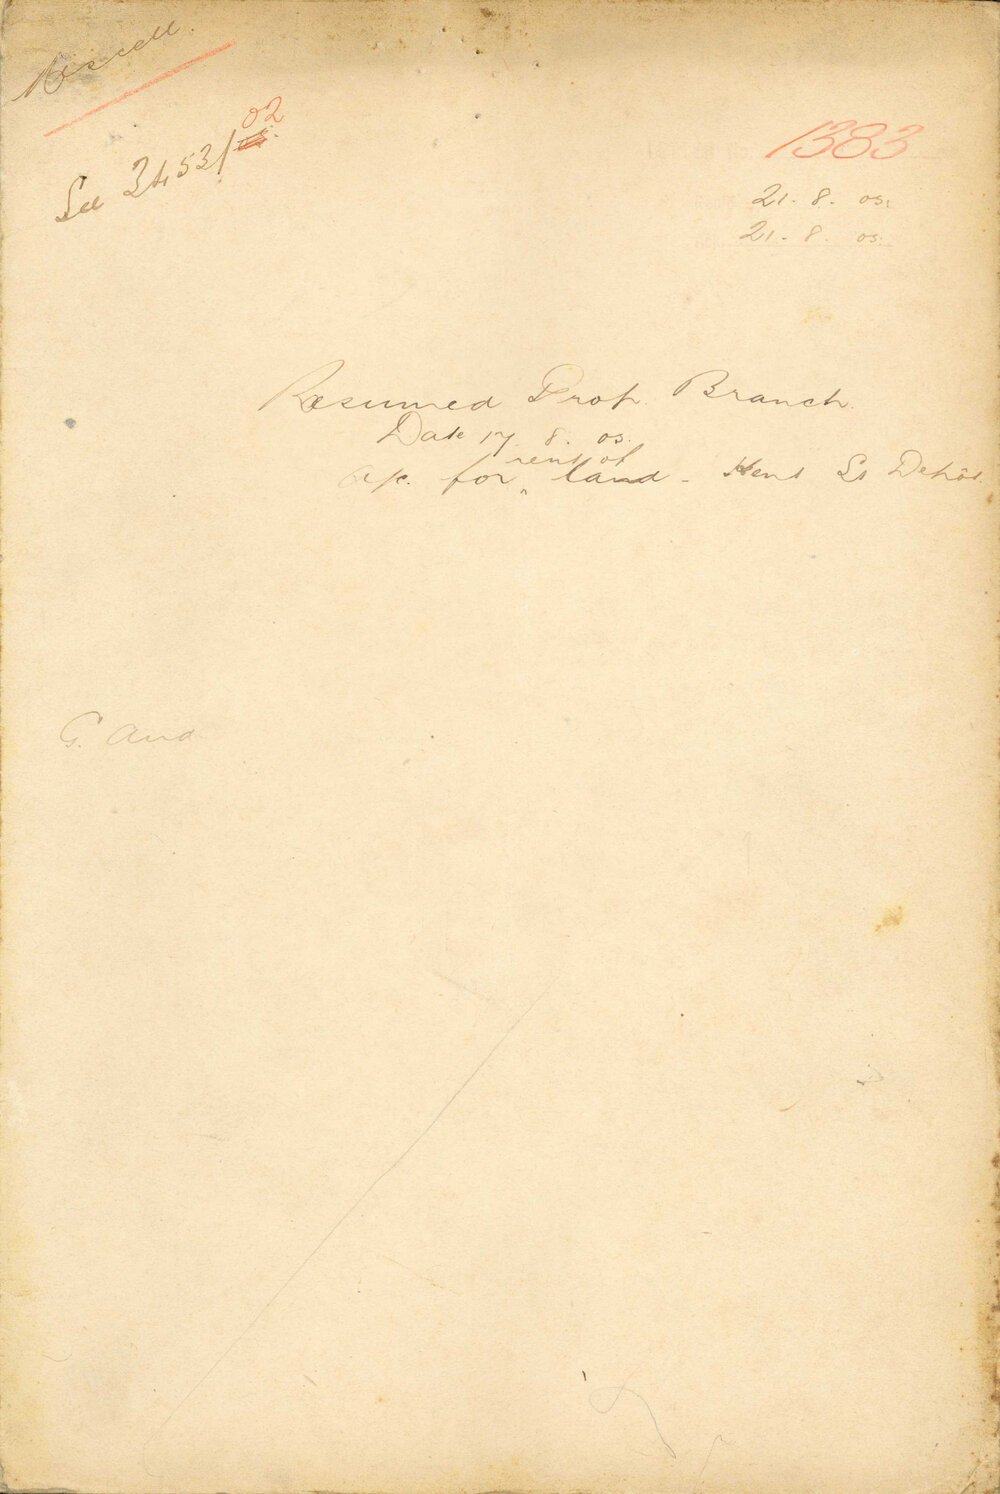 Miscell.
See 2453/ 02
1383
21. 8. 05.
21. 8. 05.
Resumed Prop. Branch.
Date 17 8. 05.
a/c. for rent of land - Kent St Depôt.
G. Aud